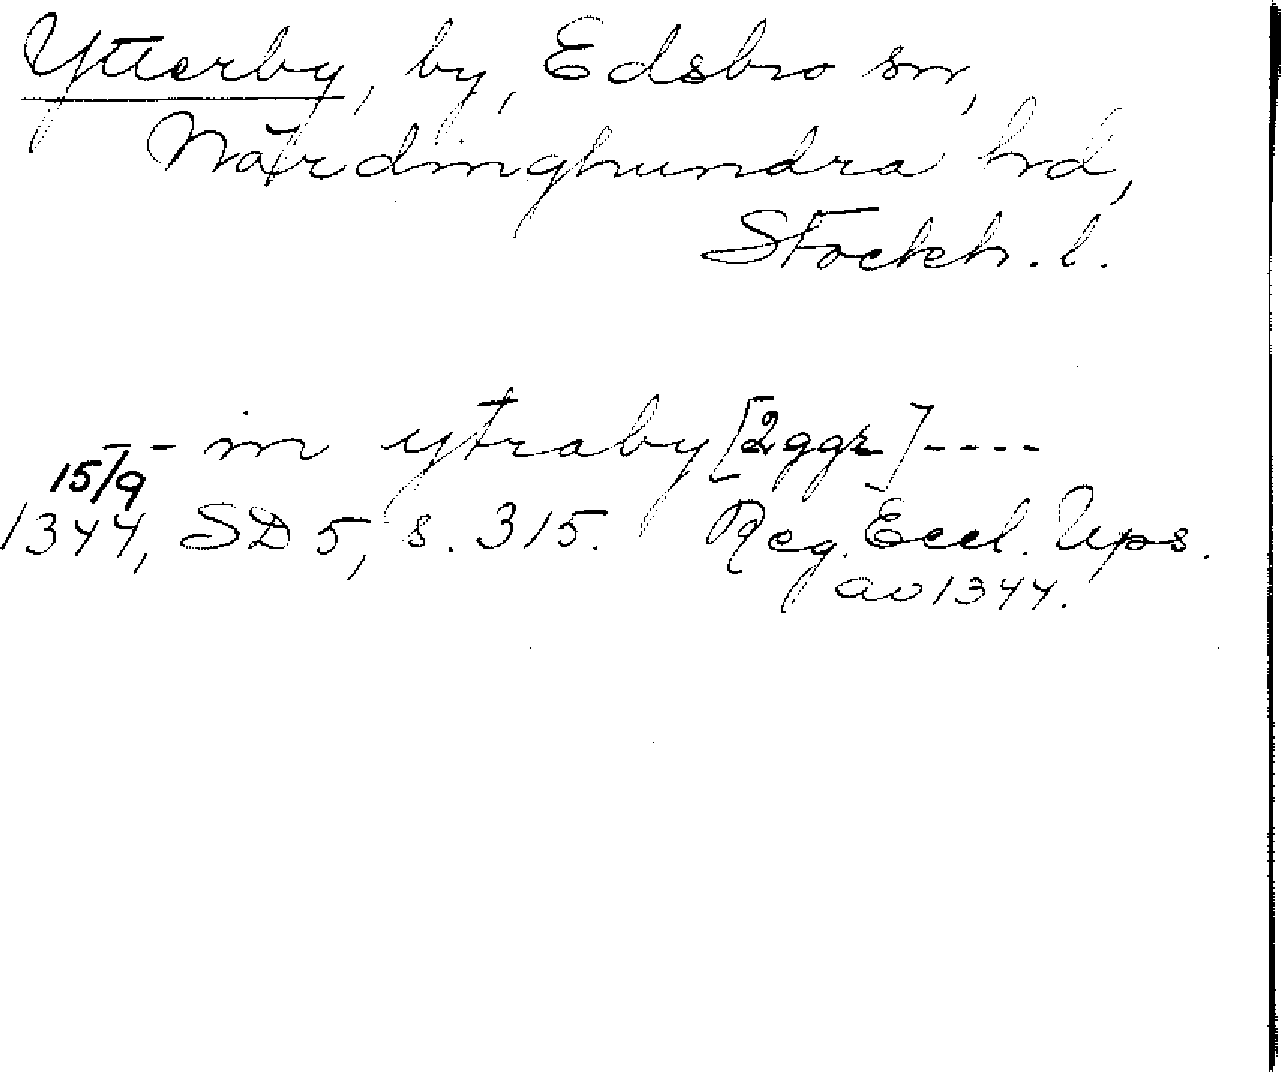 Ytterby, by, Edsbro sn,
Närdinghundra hd,
Stockh. l.
--- in ytraby [2 ggr] ----
15/9
1344, SD 5, s. 315. Reg. Eccl. Ups.
av 1344.